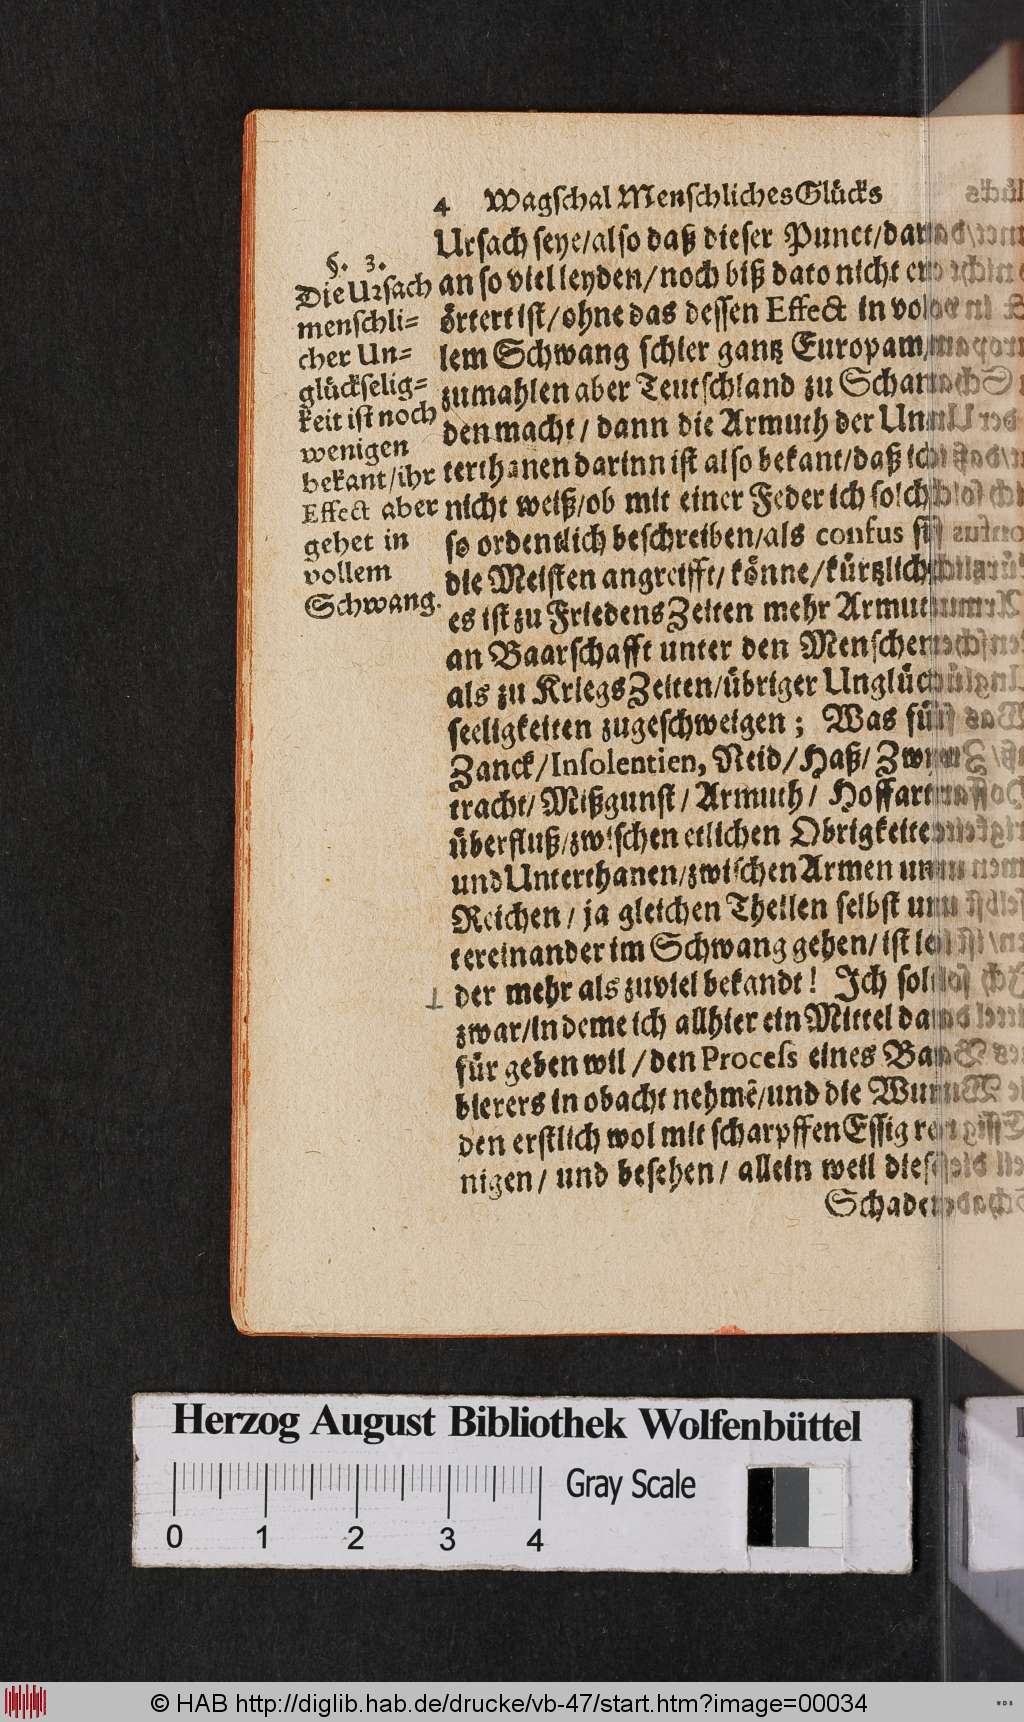 4 Wagschal Menschliches Glücks
§. 3.
Die Ursach
menschli=
cher Un=
glückselig=
keit ist noch
wenigen
bekant/ihr
Effect aber
gehet in
vollem
Schwang.
Ursach seye/also daß dieser Punct/dar
an so viel leyden/noch biß dato nicht er
örtert ist/ohne das dessen Effect in vol
lem Schwang schier gantz Europam/
zumahlen aber Teutschland zu Schan
den macht/dann die Armuth der Un
terthanen darinn ist also bekant/daß ich
nicht weiß/ob mit einer Feder ich solch
so ordentlich beschreiben/als confus sie
die Meisten angreifft/könne/kürtzlich
es ist zu Friedens Zeiten mehr Armut
an Baarschafft unter den Menschen
als zu Kriegs Zeiten/übriger Unglück
seeligkeiten zugeschweigen; Was für
Zanck/Insolentien, Neid/Haß/Zwy
tracht/Mißgunst/Armuth/Hoffart
überfluß/zwischen etlichen Obrigkeiten
und Unterthanen/zwischen Armen un
Reichen/ja gleichen Theilen selbst un
tereinander im Schwang gehen/ist lei
der mehr als zuviel bekandt! Ich sol
zwar/in deme ich allhier ein Mittel da
für geben wil/den Process eines Bar
bierers in obacht nehmē/und die Wun
den erstlich wol mit scharpffen Essig rei
nigen/und besehen/allein weil dieser
Schaden
Herzog August Bibliothek Wolfenbüttel
Gray Scale
0 1 2 3 4
© HAB http://diglib.hab.de/drucke/vb-47/start.htm?image=00034